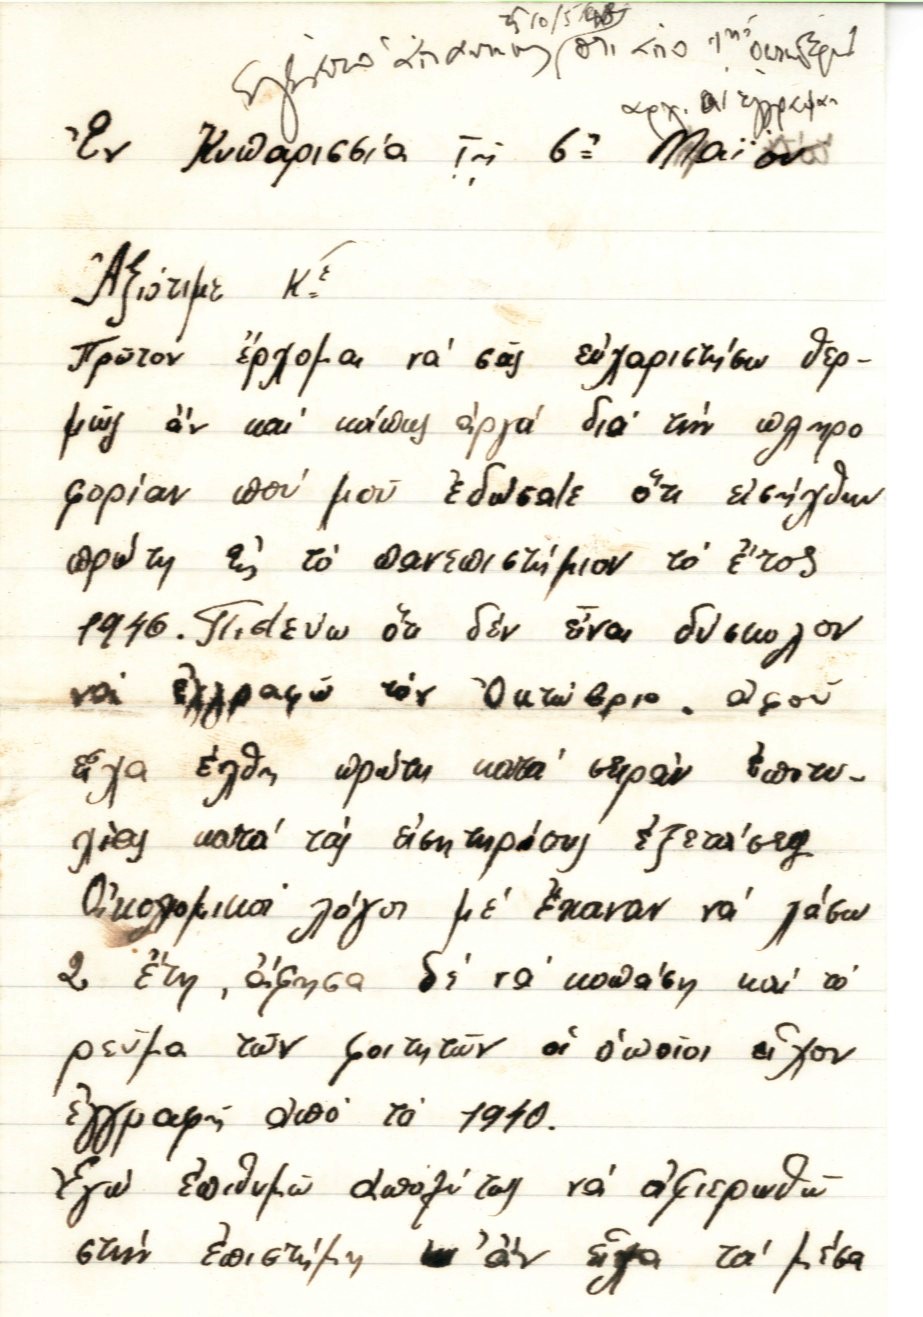 τῇ 10/5
ἀπάντησις ὅτι ἀπὸ 1ης
ἀρχ. αἱ ἐγγραφαὶ
Ἐν Κυπαρισσίᾳ τῇ 6ῃ Μαΐου
Ἀξιότιμε Κε
Πρῶτον ἔρχομαι νά σᾶς εὐχαριστήσω θερ-
μῶς ἄν καί κάπως ἀργά διά τήν πληρο
φορίαν πού μοῦ ἐδώσατε ὅτι εἰσῆλθον
πρώτη εἰς τό πανεπιστήμιον τό ἔτος
1946. Πιστεύω ὅτι δέν εἶναι δύσκολον
νά ἐγγραφῶ τόν Ὀκτώβριο. ἀφοῦ
εἶχα ἔλθη πρώτη κατά σειράν ἐπιτυ-
χίας κατά τάς εἰσιτηρίους ἐξετάσεις
Οἰκονομικοί λόγοι μέ ἔκαναν νά χάσω
2 ἔτη, ἄφησα δέ νά κοπάση καί τό
ρεῦμα τῶν φοιτητῶν οἱ ὁποῖοι εἶχον
ἐγγραφῆ ἀπό τό 1940.
Ἐγώ ἐπιθυμῶ ἀπολύτως νά ἀφιερωθῶ
στήν ἐπιστήμη ἄν εἶχα τά μέσα